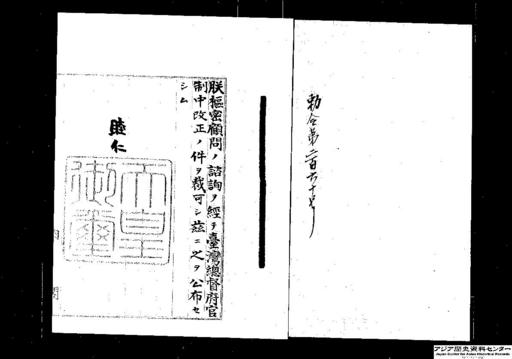 勅令第二百六十号
朕樞密顧問ノ諮詢ヲ經テ臺灣總督府官
制中改正ノ件ヲ裁可シ茲ニ之ヲ公布セ
シム
睦仁
天皇
御璽
内閣
アジア歴史資料センター
Japan Center for Asian Historical Records